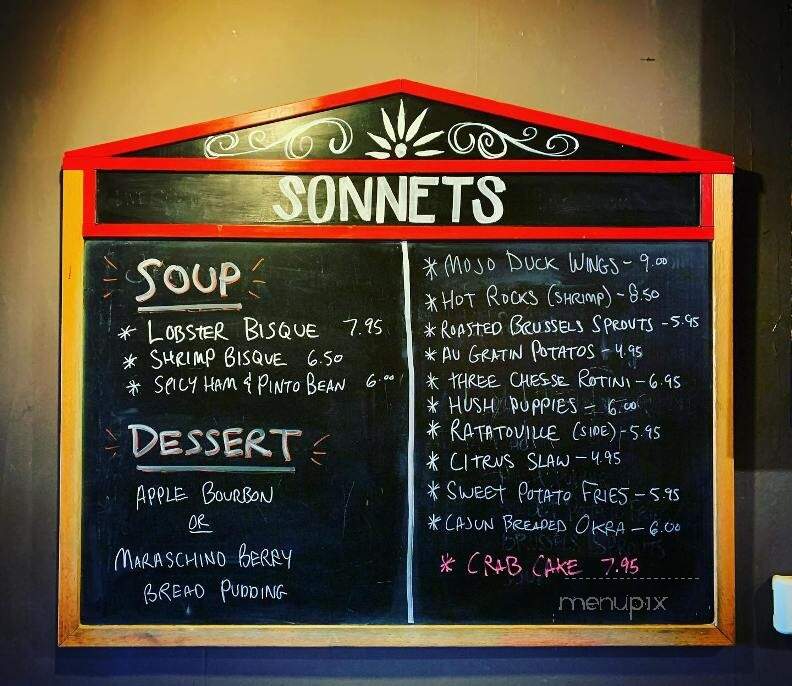 SONNETS
SOUP
* LOBSTER BISQUE 7.95
* SHRIMP BISQUE 6.50
* SPICY HAM & PINTO BEAN 6.00
DESSERT
APPLE BOURBON
OR
MARASCHINO BERRY
BREAD PUDDING
* MOJO DUCK WINGS - 9.00
* HOT ROCKS (SHRIMP) - 8.50
* ROASTED BRUSSELS SPROUTS - 5.95
* AU GRATIN POTATOS - 4.95
* THREE CHEESE ROTINI - 6.95
* HUSH PUPPIES - 6.00
* RATATOUILLE (SIDE) - 5.95
* CITRUS SLAW - 4.95
* SWEET POTATO FRIES - 5.95
* CAJUN BREADED OKRA - 6.00
* CRAB CAKE 7.95
menupix